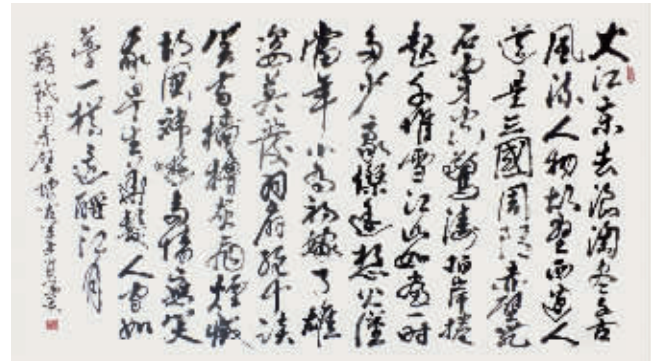 大江东去浪淘尽千古
风流人物故垒西边人
道是三國周郎赤壁乱
石穿空驚涛拍岸捲
起千堆雪江山如画一时
多少豪傑遥想公瑾
當年小喬初嫁了雄
姿英發羽扇纶巾谈
笑间樯橹灰飛煙滅
故國神遊多情应笑
我早生華髮人间如
夢一樽還酹江月
蘇軾词赤壁怀古